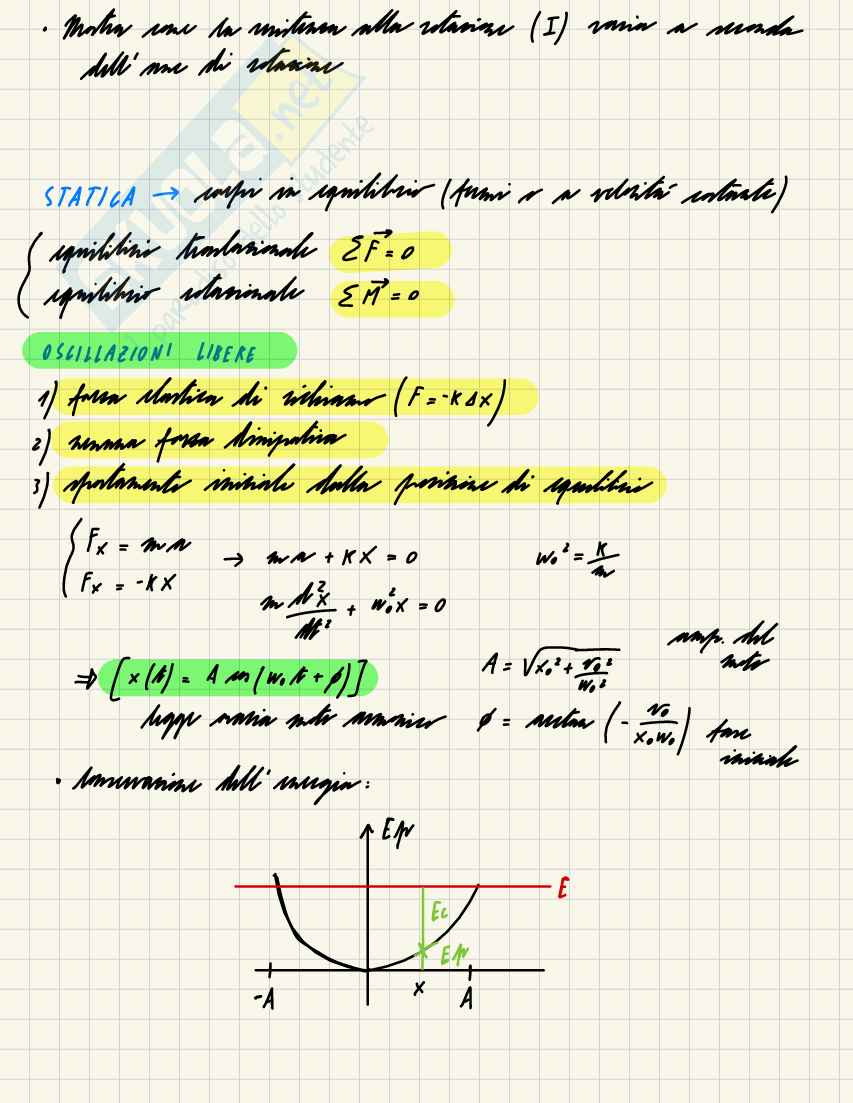 • Mostra come la resistenza alla rotazione (I) varia a seconda
dell'asse di rotazione
STATICA → corpi in equilibrio (fermi o a velocità costante)
equilibrio traslazionale ΣF⃗ = 0
equilibrio rotazionale ΣM⃗ = 0
OSCILLAZIONI LIBERE
1) forza elastica di richiamo (F = -K Δx)
2) nessuna forza dissipativa
3) spostamento iniziale dalla posizione di equilibrio
Fx = ma → ma + Kx = 0 w₀² = K/m
Fx = -Kx
m d²x/dt² + w₀²x = 0
⇒ [x(t) = A cos(w₀t + φ)] A = √(x₀² + v₀²/w₀²) amp. del moto
legge oraria moto armonico φ = arctan(-v₀/(x₀w₀)) fase iniziale
• Conservazione dell'energia:
Ep
E
Ec
Ep
-A x A
skuola.net